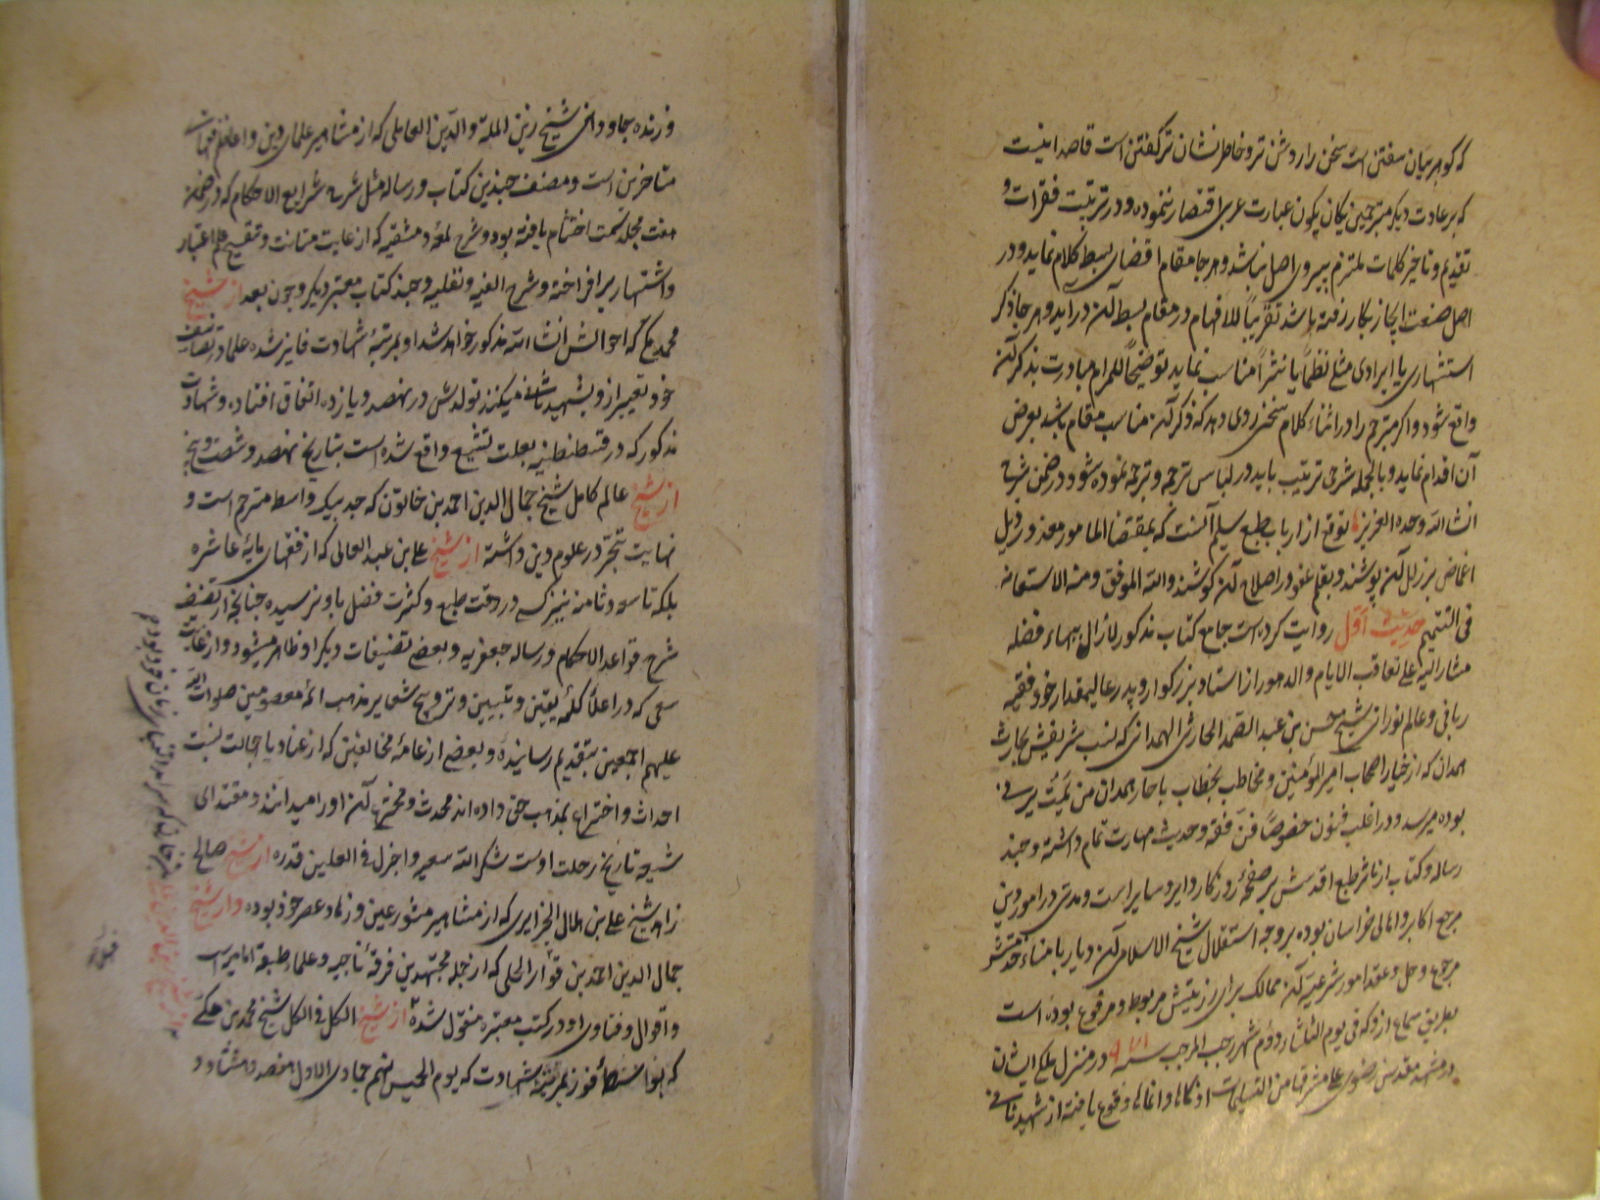 که گوهر بیان سفتن است سخن را روشن تر و خاطر نشان تر گفتن است قاصد اینست
که بر عادت دیگر مترجمین یکان یکان عبارت عربی اقتصار ننموده و در ترتیب فقرات و
تقدیم و تاخیر کلمات ملتزم پیروی اصل نباشد و هر جا مقام اقتضای بسط کلام نماید و در
اصل صنعت ایجاز بکار رفته باشد تقریباً للافهام در مقام بسط آن درآید و هر جا ذکر
استشهاری یا ایرادی مثلی نظماً یا نثراً مناسب نماید توضیحاً للمرام مبادرت بذکر آن
واقع شود و اگر مترجم را در اثناء کلام سخنی روی دهد که ذکر آن مناسب مقام باشد بعرض
آن اقدام نماید و بالجمله شرحی ترتیب یابد در لباس ترجمه و ترجمه نموده شود در ضمن شرح
انشاء الله وحده العزیز توقع از ارباب طبع سلیم آنست که بمقتضا المامور معذور ذیل
اغماض بر زلل آن پوشند و بقلم عفو در اصلاح آن کوشند والله الموفق ومنه الاستعانه
فی التتمیم حدیث اول روایت کرده است جامع کتاب مذکور لازال بهاء فضله
مشارالیه علی تعاقب الایام والدهور از استاد بزرگوار و پدر عالیمقدار خود فقیه
ربانی و عالم نورانی شیخ حسین بن عبد الصمد الحارثی الهمدانی که نسب شریفش بحارث
همدانی که از خیار اصحاب امیر المؤمنین و مخاطب بخطاب یا حار همدان من یمت یرنی
بوده میرسد و در اغلب فنون خصوصاً فن فقه و حدیث مهارت تمام داشته و چند
رساله و کتاب از تاثر طبع اقدسش بر صفحهٔ روزگار دایر و سایر است و مدتی در امور دین
مرجع اکابر و اهالی خراسان بوده بر وجه استقلال شیخ الاسلامی آن دیار
مرجوع و حل و عقد امور شرعیه آن ممالک برای رزینش مربوط و مرفوع بوده است
بطریق سماع از و که فی یوم الثلثا دوم شهر رجب المرجب سنه ۹۷۱ در منزل ملکی ایشان
در مشهد مقدس رضوی علی مشرفها من التسلیمات وقوع یافته از شهید ثانی
و زنده جاودانی شیخ زین المله والدین العاملی که از مشاهیر علمای دین و اعاظم فقهای
متاخرین است و مصنف چندین کتاب و رساله مثل شرح شرایع الاحکام که در ضمن
هفت مجلد سمت اختتام یافته بود و شرح لمعه دمشقیه که از غایت متانت و تنقیح علم اعتبار
و اشتهار برافراخته و شرح الفیه و نفلیه و چند کتاب معتبر دیگر و چون بعد از شیخ
محمد مکی که احوالش انشاء الله مذکور خواهد شد او بمرتبهٔ شهادت فایز شده علما در تصانیف
خود تعبیر از و بشهید ثانی میکنند تولدش در نهصد و یازده اتفاق افتاده و شهادت
مذکور که در قسطنطنیه بعلت تشیع واقع شده است بتاریخ نهصد و شصت و پنج
از شیخ عالم کامل شیخ جمال الدین احمد بن خاتون که جد بیک واسطه مترجم است و
نهایت تبحر در علوم دین داشته از شیخ علی بن عبد العالی که از فقهای مایهٔ عاشره
بلکه تاسعه و ثامنه نیز کسی در دقت طبع و کثرت فضل باو نرسیده چنانچه از تصنیف
شرح قواعد الاحکام و رساله جعفریه و بعضی تصنیفات دیگر او ظاهر میشود و از غایت
سعی که در اعلاء کلمهٔ یقین و تبیین و ترویج شعایر مذهب ائمهٔ معصومین صلوات الله
علیهم اجمعین بتقدیم رسانیده و بعضی از عامهٔ مخالفین که از عناد یا جهالت نسبت
احداث و اختراع بمذهب حق داده اند محدث و مخترع آن او را میدانند و مقتدای
شیعه تاریخ رحلت اوست شکر الله سعیه و اجزل فی العلیین قدره از شیخ صالح
زاهد شیخ علی بن هلال الجزایری که از مشاهیر متورعین و زهاد عصر خود بوده و از شیخ
جمال الدین احمد بن فهد الحلی که از جمله مجتهدین فرقهٔ ناجیه و علماء طبقه امامیه است
و اقوال و فتاوی او در کتب معتبره منقول شده از شیخ الکل فی الکل شیخ محمد بن مکی
که فوز بمرتبهٔ شهادت که یوم الخمیس نهم جمادی الاول هفتصد و هشتاد و